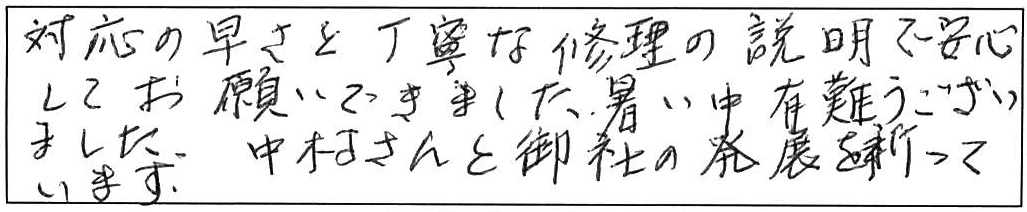 対応の早さと丁寧な修理の説明で安心
してお願いできました、暑い中有難うござい
ました、 中村さんと御社の発展を祈って
います、